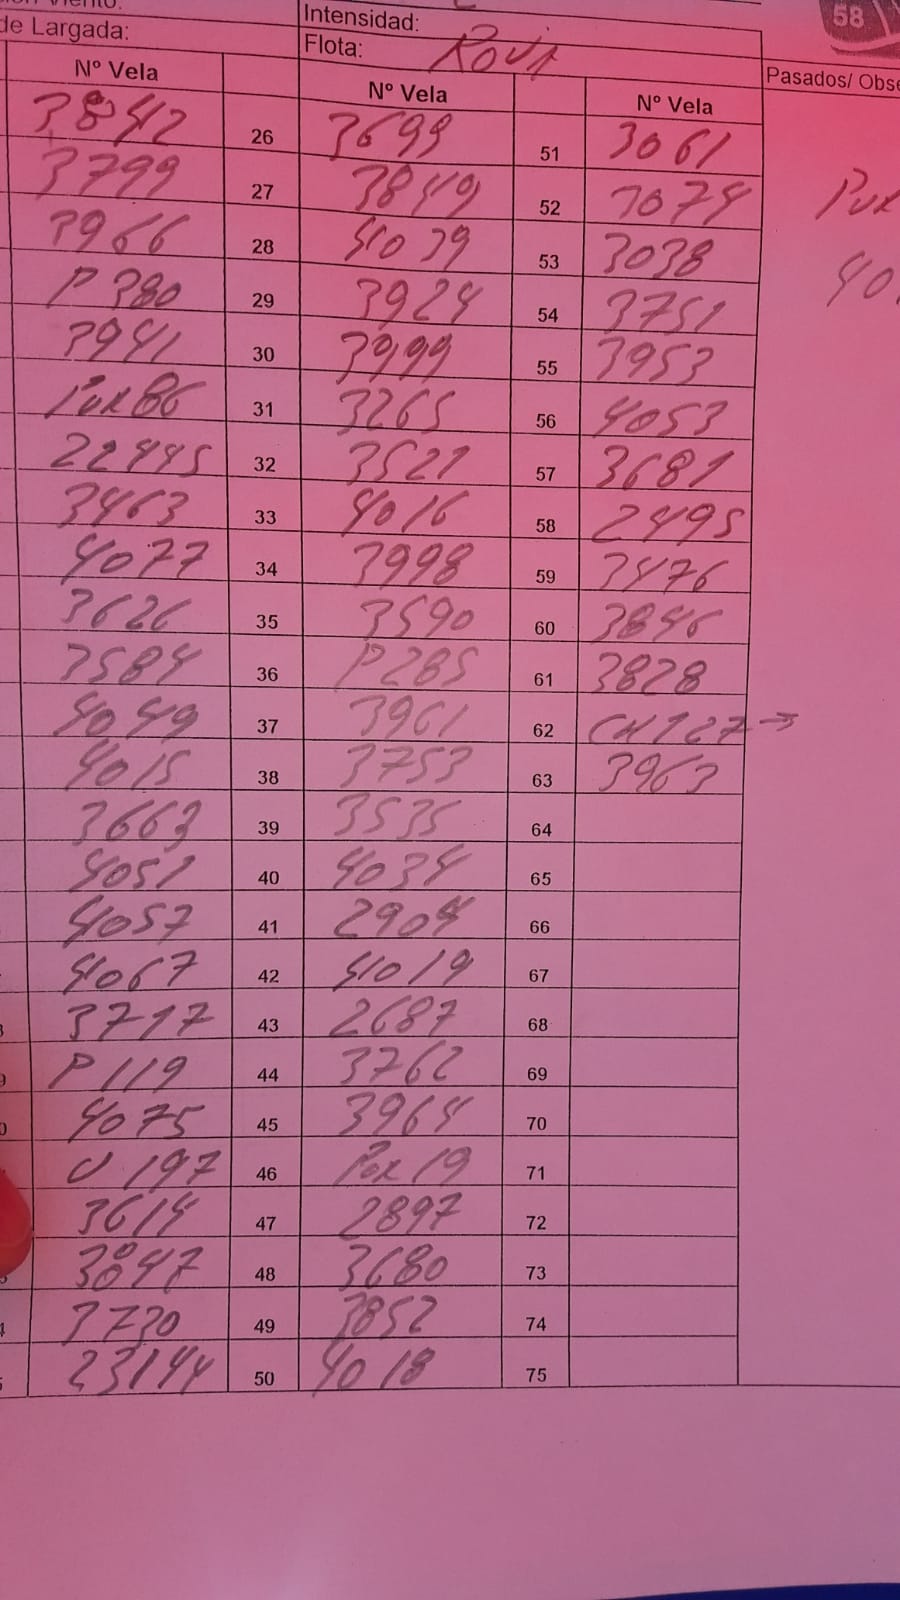 Intensidad:
de Largada:
Flota: Roja
58
Nº Vela Nº Vela Nº Vela Pasados/ Obse
3842 26 3699 51 3061
3799 27 3849 52 3074
3966 28 4039 53 3038
P 380 29 3924 54 3751
3941 30 3999 55 3953
Pux 86 31 3265 56 4053
22445 32 3521 57 3681
3463 33 4016 58 2495
4077 34 3998 59 3476
3626 35 3590 60 3846
3584 36 P285 61 3828
4049 37 3961 62 CH127 →
4015 38 3753 63 3963
3663 39 3535 64
4051 40 4034 65
4057 41 2904 66
4067 42 4019 67
3717 43 2687 68
P 119 44 3762 69
4075 45 3964 70
U 197 46 Pux 19 71
3614 47 2897 72
3847 48 3680 73
3730 49 3852 74
23144 50 4018 75
Pux
40